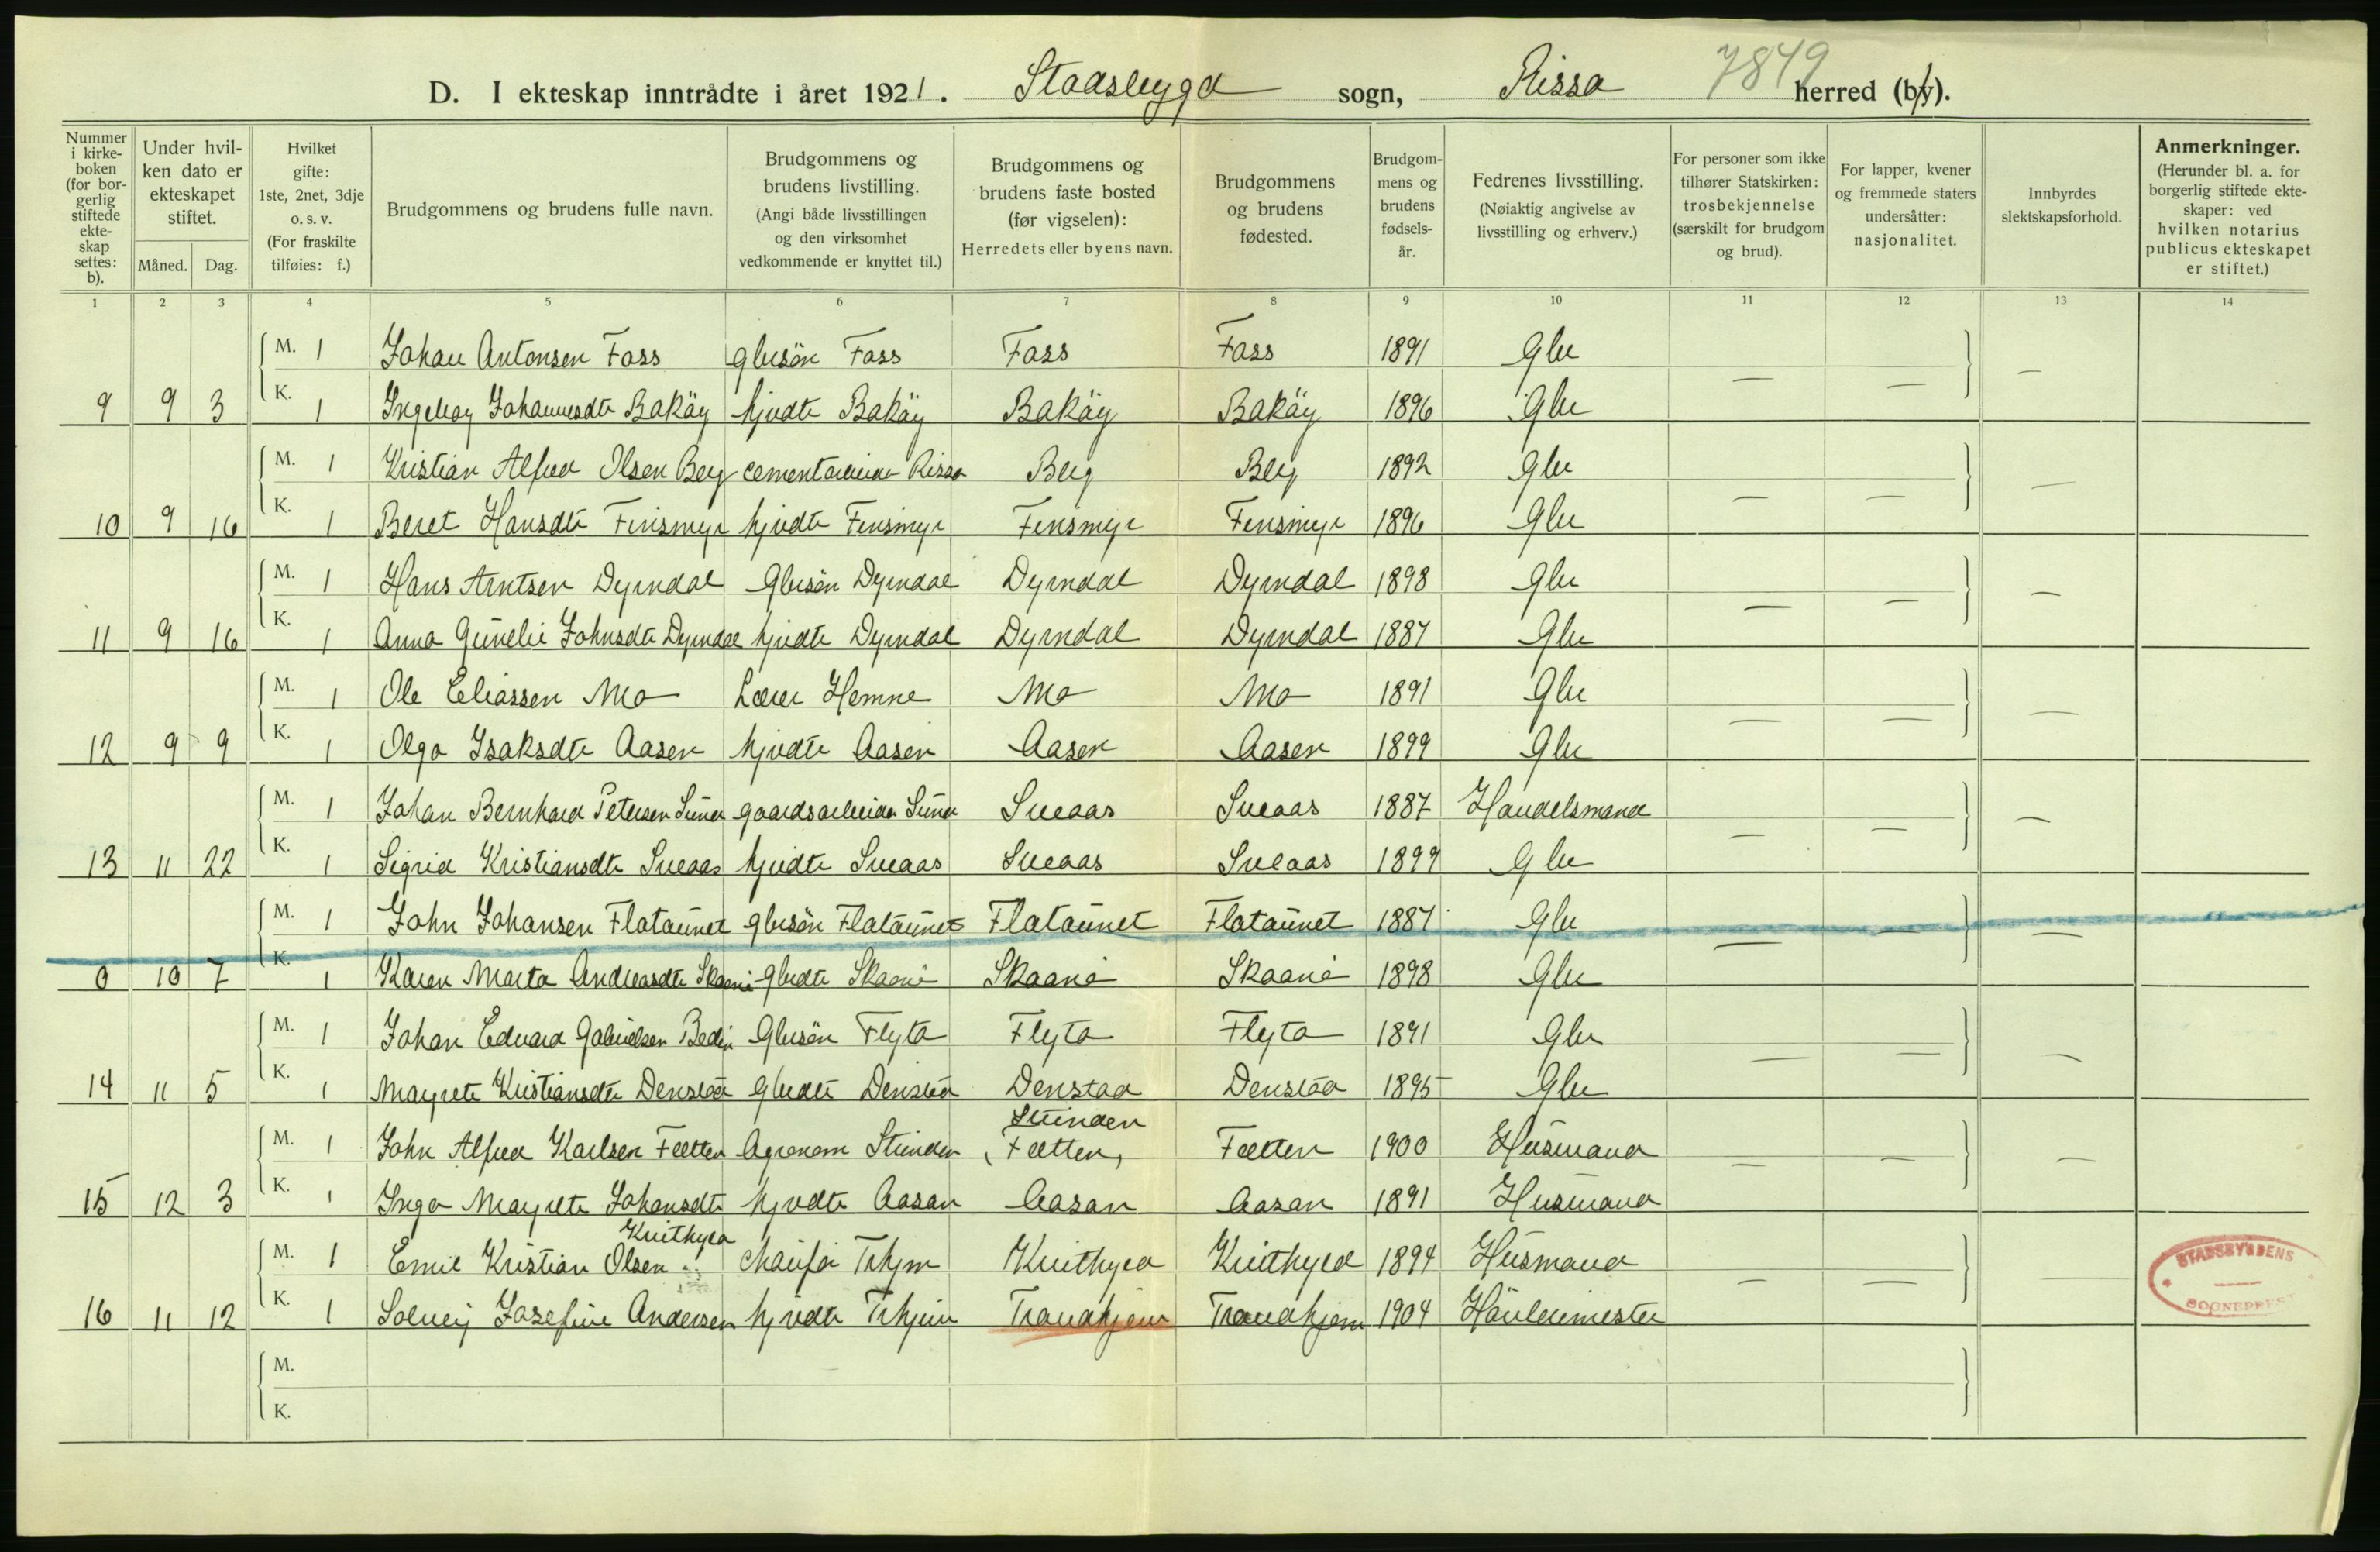 D. I ekteskap inntrådte i året 1921. Stadsbygd sogn, Rissa herred (by).
7849
Nummer i kirkeboken (for borgerlig stiftede ekteskap settes: b).
Under hvilken dato er ekteskapet stiftet.
Måned. Dag.
Hvilket gifte: 1ste, 2net, 3dje o. s. v. (For fraskilte tilføies: f.)
Brudgommens og brudens fulle navn.
Brudgommens og brudens livstilling. (Angi både livsstillingen og den virksomhet vedkommende er knyttet til.)
Brudgommens og brudens faste bosted (før vigselen): Herredets eller byens navn.
Brudgommens og brudens fødested.
Brudgommens og brudens fødselsår.
Fedrenes livsstilling. (Nøiaktig angivelse av livsstilling og erhverv.)
For personer som ikke tilhører Statskirken: trosbekjennelse (særskilt for brudgom og brud).
For lapper, kvener og fremmede staters undersåtter: nasjonalitet.
Innbyrdes slektskapsforhold.
Anmerkninger. (Herunder bl. a. for borgerlig stiftede ekteskaper: ved hvilken notarius publicus ekteskapet er stiftet.)
1 2 3 4 5 6 7 8 9 10 11 12 13 14
M. 1 Johan Antonsen Fass gbrsön Fass Fass Fass 1891 Gbr —
9 9 3 K. 1 Ingebor Johannesdtr Baköy hjvdtr Baköy Baköy Baköy 1896 Gbr — —
M. 1 Kristian Alfred Olsen Berg cementarbeider Rissa Berg Berg 1892 Gbr —
10 9 16 K. 1 Beret Hansdtr Fensmyr hjvdtr Fensmyr Fensmyr Fensmyr 1896 Gbr — —
M. 1 Hans Arntsen Dyrndal Gbrsön Dyrndal Dyrndal Dyrndal 1898 Gbr —
11 9 16 K. 1 Anna Gunelie Johnsdtr Dyrndal hjvdtr Dyrndal Dyrndal Dyrndal 1887 Gbr — —
M. 1 Ole Eliassen Mo Lærer Hemne Mo Mo 1891 Gbr —
12 9 9 K. 1 Olga Isaksdtr Aasen hjvdtr Aasen Aasen Aasen 1899 Gbr — —
M. 1 Johan Bernhard Petersen Sund gaardsarbeider Sund Sveaas Sveaas 1887 Handelsmand —
13 11 22 K. 1 Sigrid Kristiansdtr Sveaas hjvdtr Sveaas Sveaas Sveaas 1899 Gbr — —
M. 1 John Johansen Flataunet gbrsön Flataunet Flataunet Flataunet 1887 Gbr — —
0 10 7 K. 1 Karen Marta Andreasdtr Skaane Gbrdtr Skaane Skaane Skaane 1898 Gbr —
M. 1 Johan Edvard Gabrielsen Bedin Gbrsön Flyta Flyta Flyta 1891 Gbr —
14 11 5 K. 1 Margrete Kristiansdtr Denstad gbrdtr Denstad Denstad Denstad 1895 Gbr — —
Stunden
M. 1 John Alfred Karlsen Fætten Agronom Stunden (Fætten) Fætten 1900 Husmand —
15 12 3 K. 1 Inga Margrete Johansdtr hjvdtr Aasan Aasan Aasan 1891 Husmand — —
Kvithyld
M. 1 Emil Kristian Olsen Chaufør Trhjm Kvithyld Kvithyld 1894 Husmand —
16 11 12 K. 1 Solveig Josefine Andersen hjvdtr Trhjem Trondhjem Trondhjem 1904 Hauler­mester — —
STADSBYGDENS SOGNEPREST
M.
K.